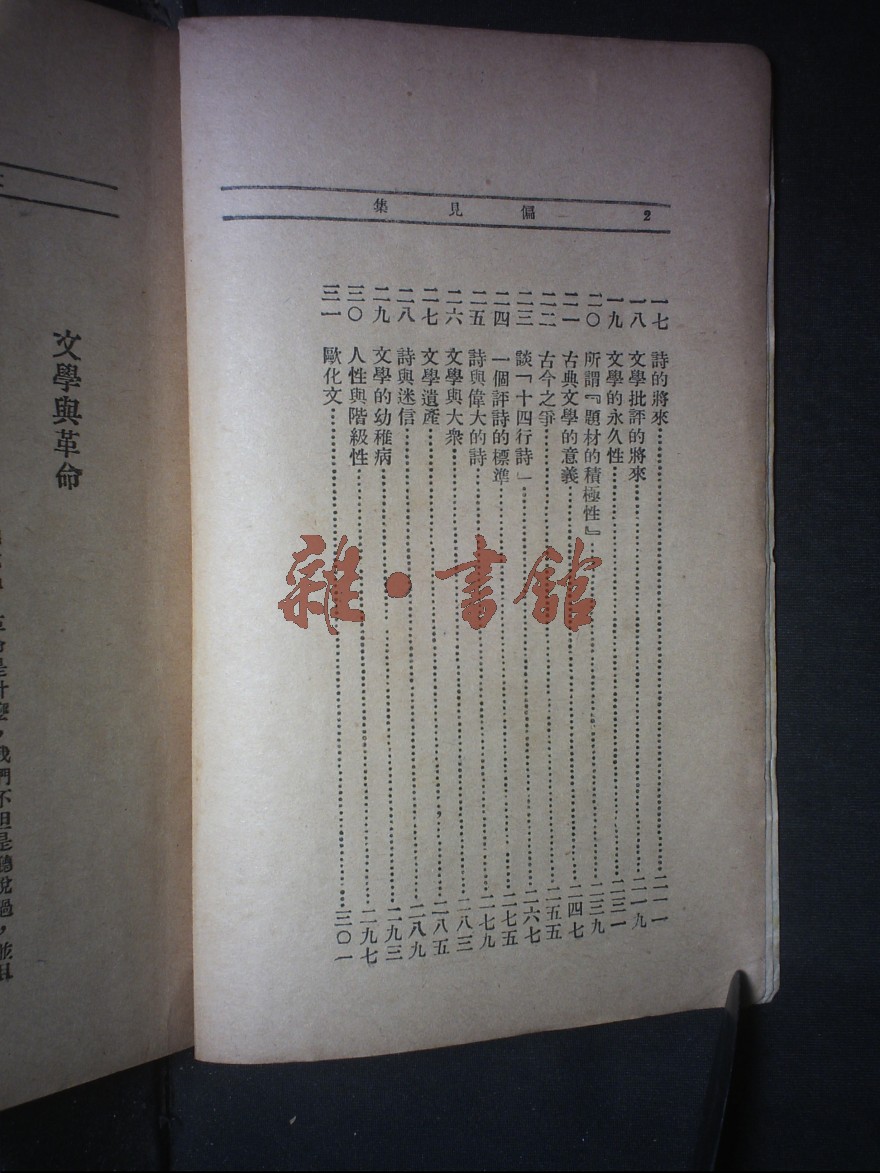 偏見集
2
一七 詩的將來 二一一
一八 文學批評的將來 二一九
一九 文學的永久性 二三一
二〇 所謂『題材的積極性』 二三九
二一 古典文學的意義 二四七
二二 古今之爭 二五五
二三 談「十四行詩」 二六七
二四 一個評詩的標準 二七五
二五 詩與偉大的詩 二七九
二六 文學與大衆 二八三
二七 文學遺產 二八五
二八 詩與迷信 二八九
二九 文學的幼稚病 二九三
三〇 人性與階級性 二九七
三一 歐化文 三〇一
雜·書館
文學與革命
是什麼，我們不但是聽說過，並且